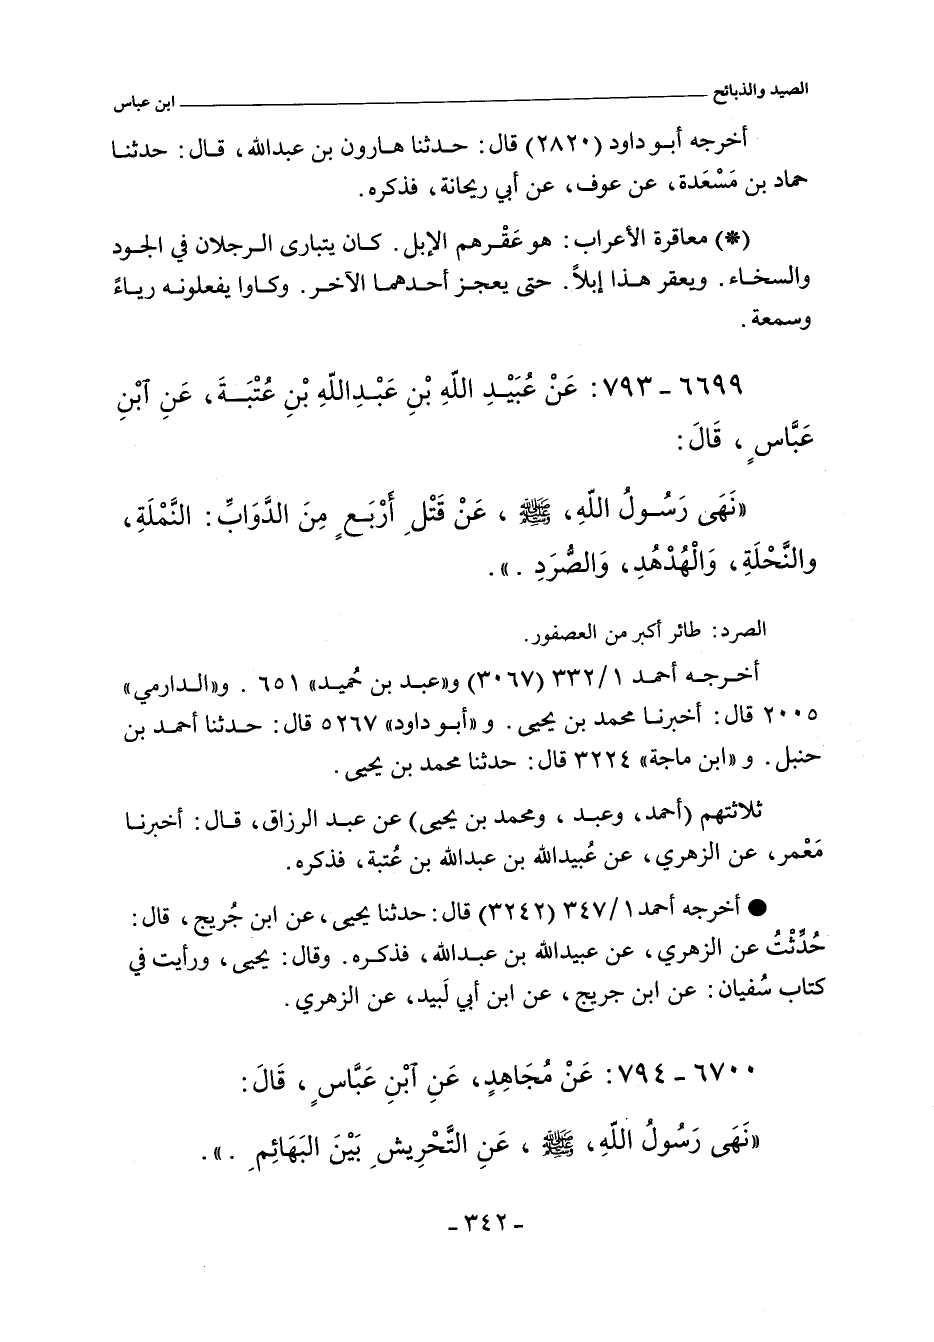 الصيد والذبائح ابن عباس
أخرجه أبو داود (٢٨٢٠) قال: حدثنا هارون بن عبدالله، قال: حدثنا
حماد بن مَسْعَدة، عن عوف، عن أبي ريحانة، فذكره.
(*) معاقرة الأعراب: هو عَقْرهم الإبل. كان يتبارى الرجلان في الجود
والسخاء. ويعقر هذا إبلاً. حتى يعجز أحدهما الآخر. وكاوا يفعلونه رياءً
وسمعة.
٦٦٩٩ - ٧٩٣: عَنْ عُبَيْدِ اللّهِ بْنِ عَبْدِاللّهِ بْنِ عُتْبَةَ، عَنِ آبْنِ
عَبَّاسٍ، قَالَ:
«نَهَى رَسُولُ اللّهِ، ﷺ، عَنْ قَتْلِ أَرْبَعٍ مِنَ الدَّوَابِّ: النَّمْلَةِ،
والنَّحْلَةِ، وَالْهُدْهُدِ، وَالصُّرَدِ.».
الصرد: طائر أكبر من العصفور.
أخرجه أحمد ٣٣٢/١ (٣٠٦٧) و«عبد بن حُميد» ٦٥١. و«الدارمي»
٢٠٠٥ قال: أخبرنا محمد بن يحيى. و «أبو داود» ٥٢٦٧ قال: حدثنا أحمد بن
حنبل. و «ابن ماجة» ٣٢٢٤ قال: حدثنا محمد بن يحيى.
ثلاثتهم (أحمد، وعبد، ومحمد بن يحيى) عن عبد الرزاق، قال: أخبرنا
مَعْمر، عن الزهري، عن عُبيدالله بن عبدالله بن عُتبة، فذكره.
● أخرجه أحمد ٣٤٧/١ (٣٢٤٢) قال: حدثنا يحيى، عن ابن جُريج، قال:
حُدِّثْتُ عن الزهري، عن عبيدالله بن عبدالله، فذكره. وقال: يحيى، ورأيت في
كتاب سُفيان: عن ابن جريج، عن ابن أبي لَبيد، عن الزهري.
٦٧٠٠ - ٧٩٤: عَنْ مُجَاهِدٍ، عَنِ آبْنِ عَبَّاسٍ، قَالَ:
«نَهَى رَسُولُ اللّهِ، ﷺ، عَنِ التَّحْرِيشِ بَيْنَ البَهَائِمِ.».
- ٣٤٢ -